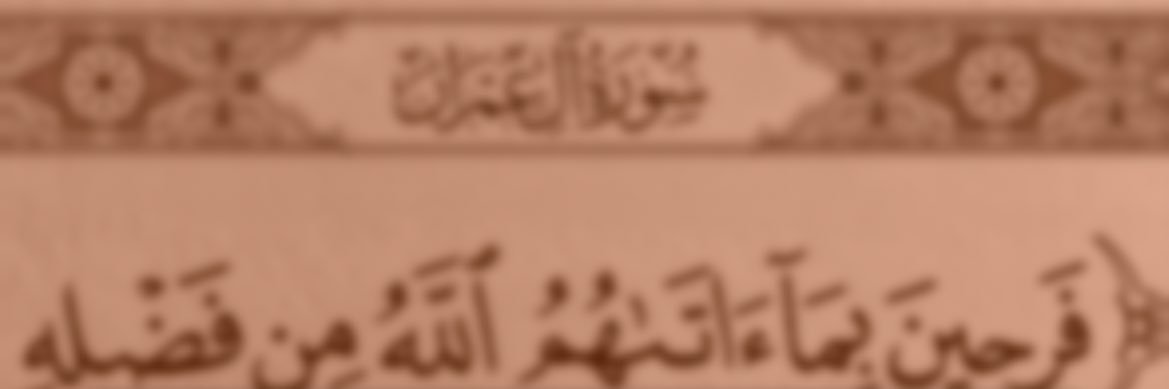 سُورَةُ آلِ عِمْرَانَ
فَرِحِينَ بِمَآ ءَاتَىٰهُمُ ٱللَّهُ مِن فَضْلِهِ